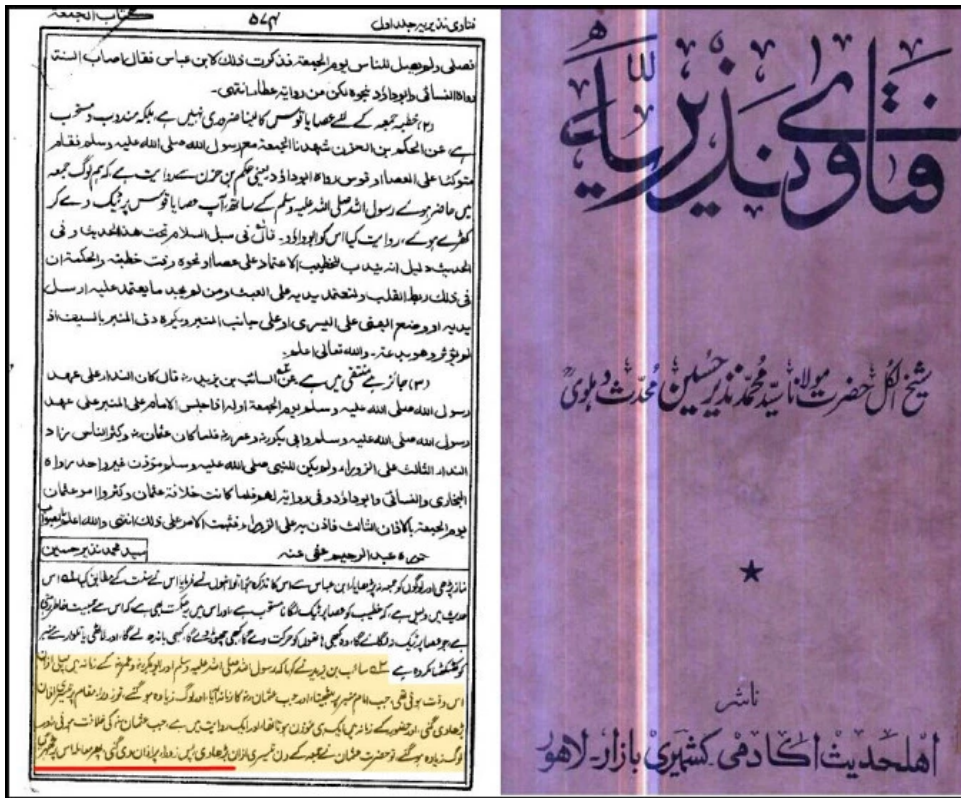 فتاوی نذیریہ جلد اول
۵۷۴
کتاب الجمعۃ
فصلی ولم یصل للناس یوم الجمعۃ فذکرت ذلک لابن عباس فقال اصاب السنۃ
رواہ النسائی وابوداؤد نحوہ لکن من روایۃ عطاء انتہی۔
(۲) خطبہ جمعہ کے لئے عصا یا قوس کا لینا ضروری نہیں ہے، بلکہ مندوب و مستحب
ہے، عن الحکم بن الحزن شہدنا الجمعۃ مع رسول اللہ صلی اللہ علیہ وسلم فقام
متوکئا علی العصا او قوس رواہ ابوداؤد یعنی حکم بن حزن سے روایت ہے، کہ ہم لوگ جمعہ
میں حاضر ہوئے رسول اللہ صلی اللہ علیہ وسلم کے ساتھ، آپ عصا یا قوس پر ٹیک دے کر
کھڑے ہوئے، روایت کیا اس کو ابوداؤد۔ قال فی سبل السلام تحت ھذا الحدیث وفی
الحدیث دلیل انہ یندب للخطیب الاعتماد علی عصا او نحوہ وقت خطبتہ والحکمۃ ان
فی ذلک ربط القلب ولتعتمد یدیہ علی العبث ومن لم یجد ما یعتمد علیہ ارسل
یدیہ او وضع الیمنی علی الیسری او علی جانب المنبر ویکرہ دق المنبر بالسیف اذ
لم یؤثر وھو بدعۃ۔ واللہ تعالی اعلم۔
(۳) جائز ہے منتقی میں ہے، عن السائب بن یزید قال کان النداء علی عہد
رسول اللہ صلی اللہ علیہ وسلم یوم الجمعۃ اولہ اذا جلس الامام علی المنبر علی عہد
رسول اللہ صلی اللہ علیہ وسلم وابی بکر وعمر فلما کان عثمان وکثر الناس زاد
النداء الثالث علی الزوراء ولم یکن للنبی صلی اللہ علیہ وسلم مؤذن غیر واحد رواہ
البخاری والنسائی وابوداؤد وفی روایۃ لھم فلما کانت خلافۃ عثمان وکثروا امر عثمان
یوم الجمعۃ بالاذان الثالث فاذن بہ علی الزوراء فثبت الامر علی ذلک انتہی واللہ اعلم بالصواب
حررہ عبد الرحیم عفی عنہ
سید محمد نذیر حسین
نماز پڑھی اور لوگوں کو جمعہ نہ پڑھایا، ابن عباس سے اس کا تذکرہ ہوا تو انہوں نے فرمایا اس نے سنت کے مطابق کیا، اس
حدیث میں دلیل ہے، کہ خطیب کو عصا پر ٹیک لگانا مستحب ہے، اور اس میں یہ حکمت بھی ہے کہ اس سے جمعیت خاطر رہتی
ہے، جو عصا پر ٹیک نہ لگائے گا، وہ کبھی ہاتھوں کو حرکت دے گا، کبھی چھوڑ دے گا، کبھی باندھ لے گا، اور لاٹھی یا تلوار سے منبر
کو کھٹکھٹانا مکروہ ہے سائب بن یزید نے کہا کہ رسول اللہ صلی اللہ علیہ وسلم اور ابوبکر و عمر کے زمانہ میں پہلی اذان
اس وقت ہوتی تھی جب امام منبر پر بیٹھتا، اور جب عثمان کا زمانہ آیا، اور لوگ زیادہ ہو گئے، تو زوراء مقام پر تیسری اذان
بڑھا دی گئی، اور حضور کے زمانہ میں ایک ہی مؤذن ہوتا تھا، اور ایک روایت میں ہے، جب عثمان کی خلافت ہوئی، اور
لوگ زیادہ ہو گئے، تو حضرت عثمان نے جمعہ کے دن تیسری اذان بڑھا دی پس زوراء پر اذان دی گئی، پھر معاملہ اس پر ٹھہر گیا
فتاوی نذیریہ
شیخ الکل حضرت مولانا سید محمد نذیر حسین محدث دہلوی
ناشر
اہلحدیث اکادمی کشمیری بازار۔ لاہور